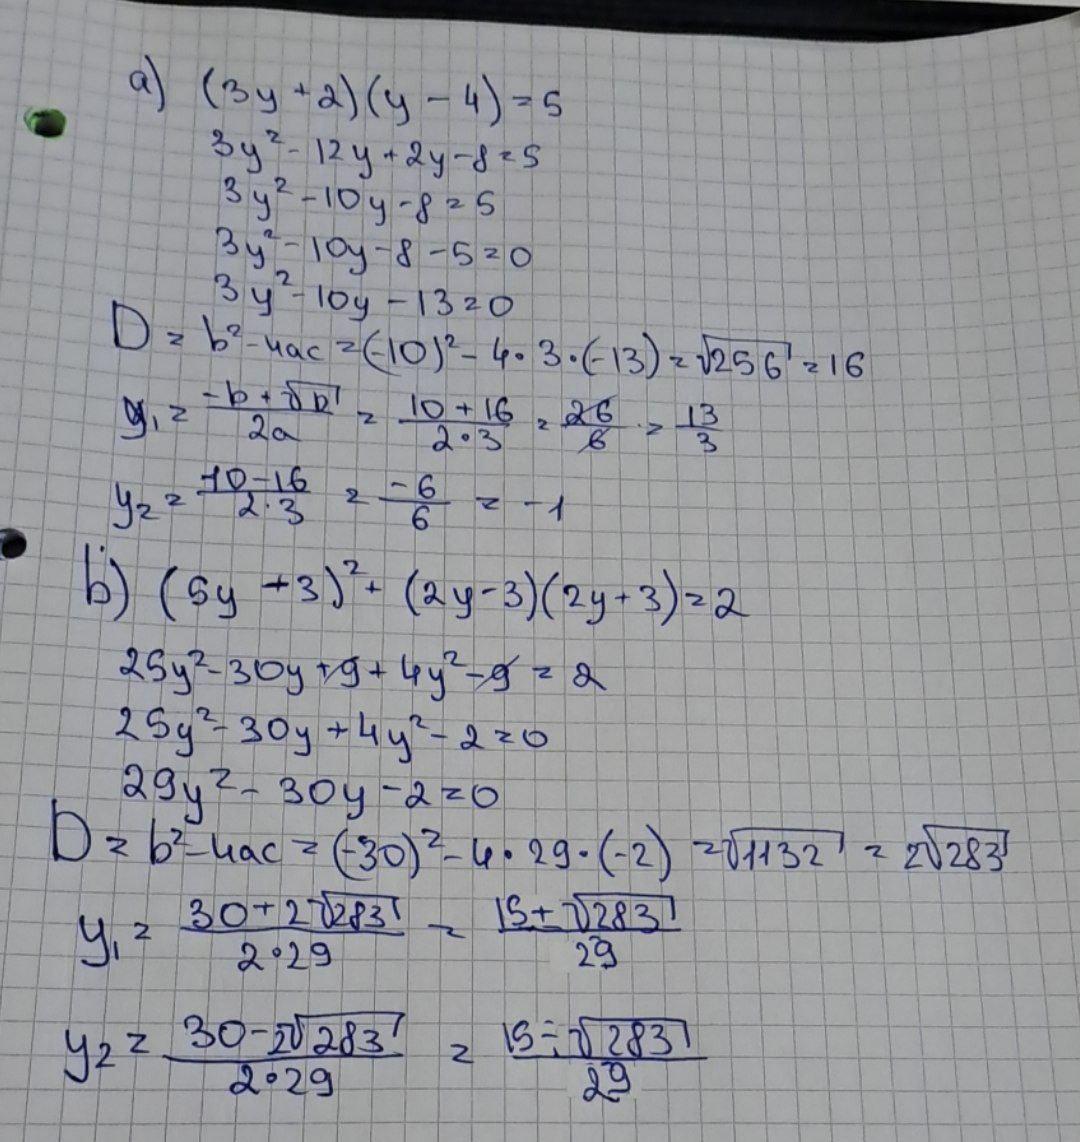 a) (3y + 2)(y - 4) = 5
3y² - 12y + 2y - 8 = 5
3y² - 10y - 8 = 5
3y² - 10y - 8 - 5 = 0
3y² - 10y - 13 = 0
D = b² - 4ac = (-10)² - 4 · 3 · (-13) = √256 = 16
y₁ = (-b + √D)/2a = (10 + 16)/(2 · 3) = 26/6 = 13/3
y₂ = (10 - 16)/(2 · 3) = -6/6 = -1
b) (5y + 3)² + (2y - 3)(2y + 3) = 2
25y² - 30y + 9 + 4y² - 9 = 2
25y² - 30y + 4y² - 2 = 0
29y² - 30y - 2 = 0
D = b² - 4ac = (-30)² - 4 · 29 · (-2) = √1132 = 2√283
y₁ = (30 + 2√283)/(2 · 29) = (15 + √283)/29
y₂ = (30 - 2√283)/(2 · 29) = (15 - √283)/29